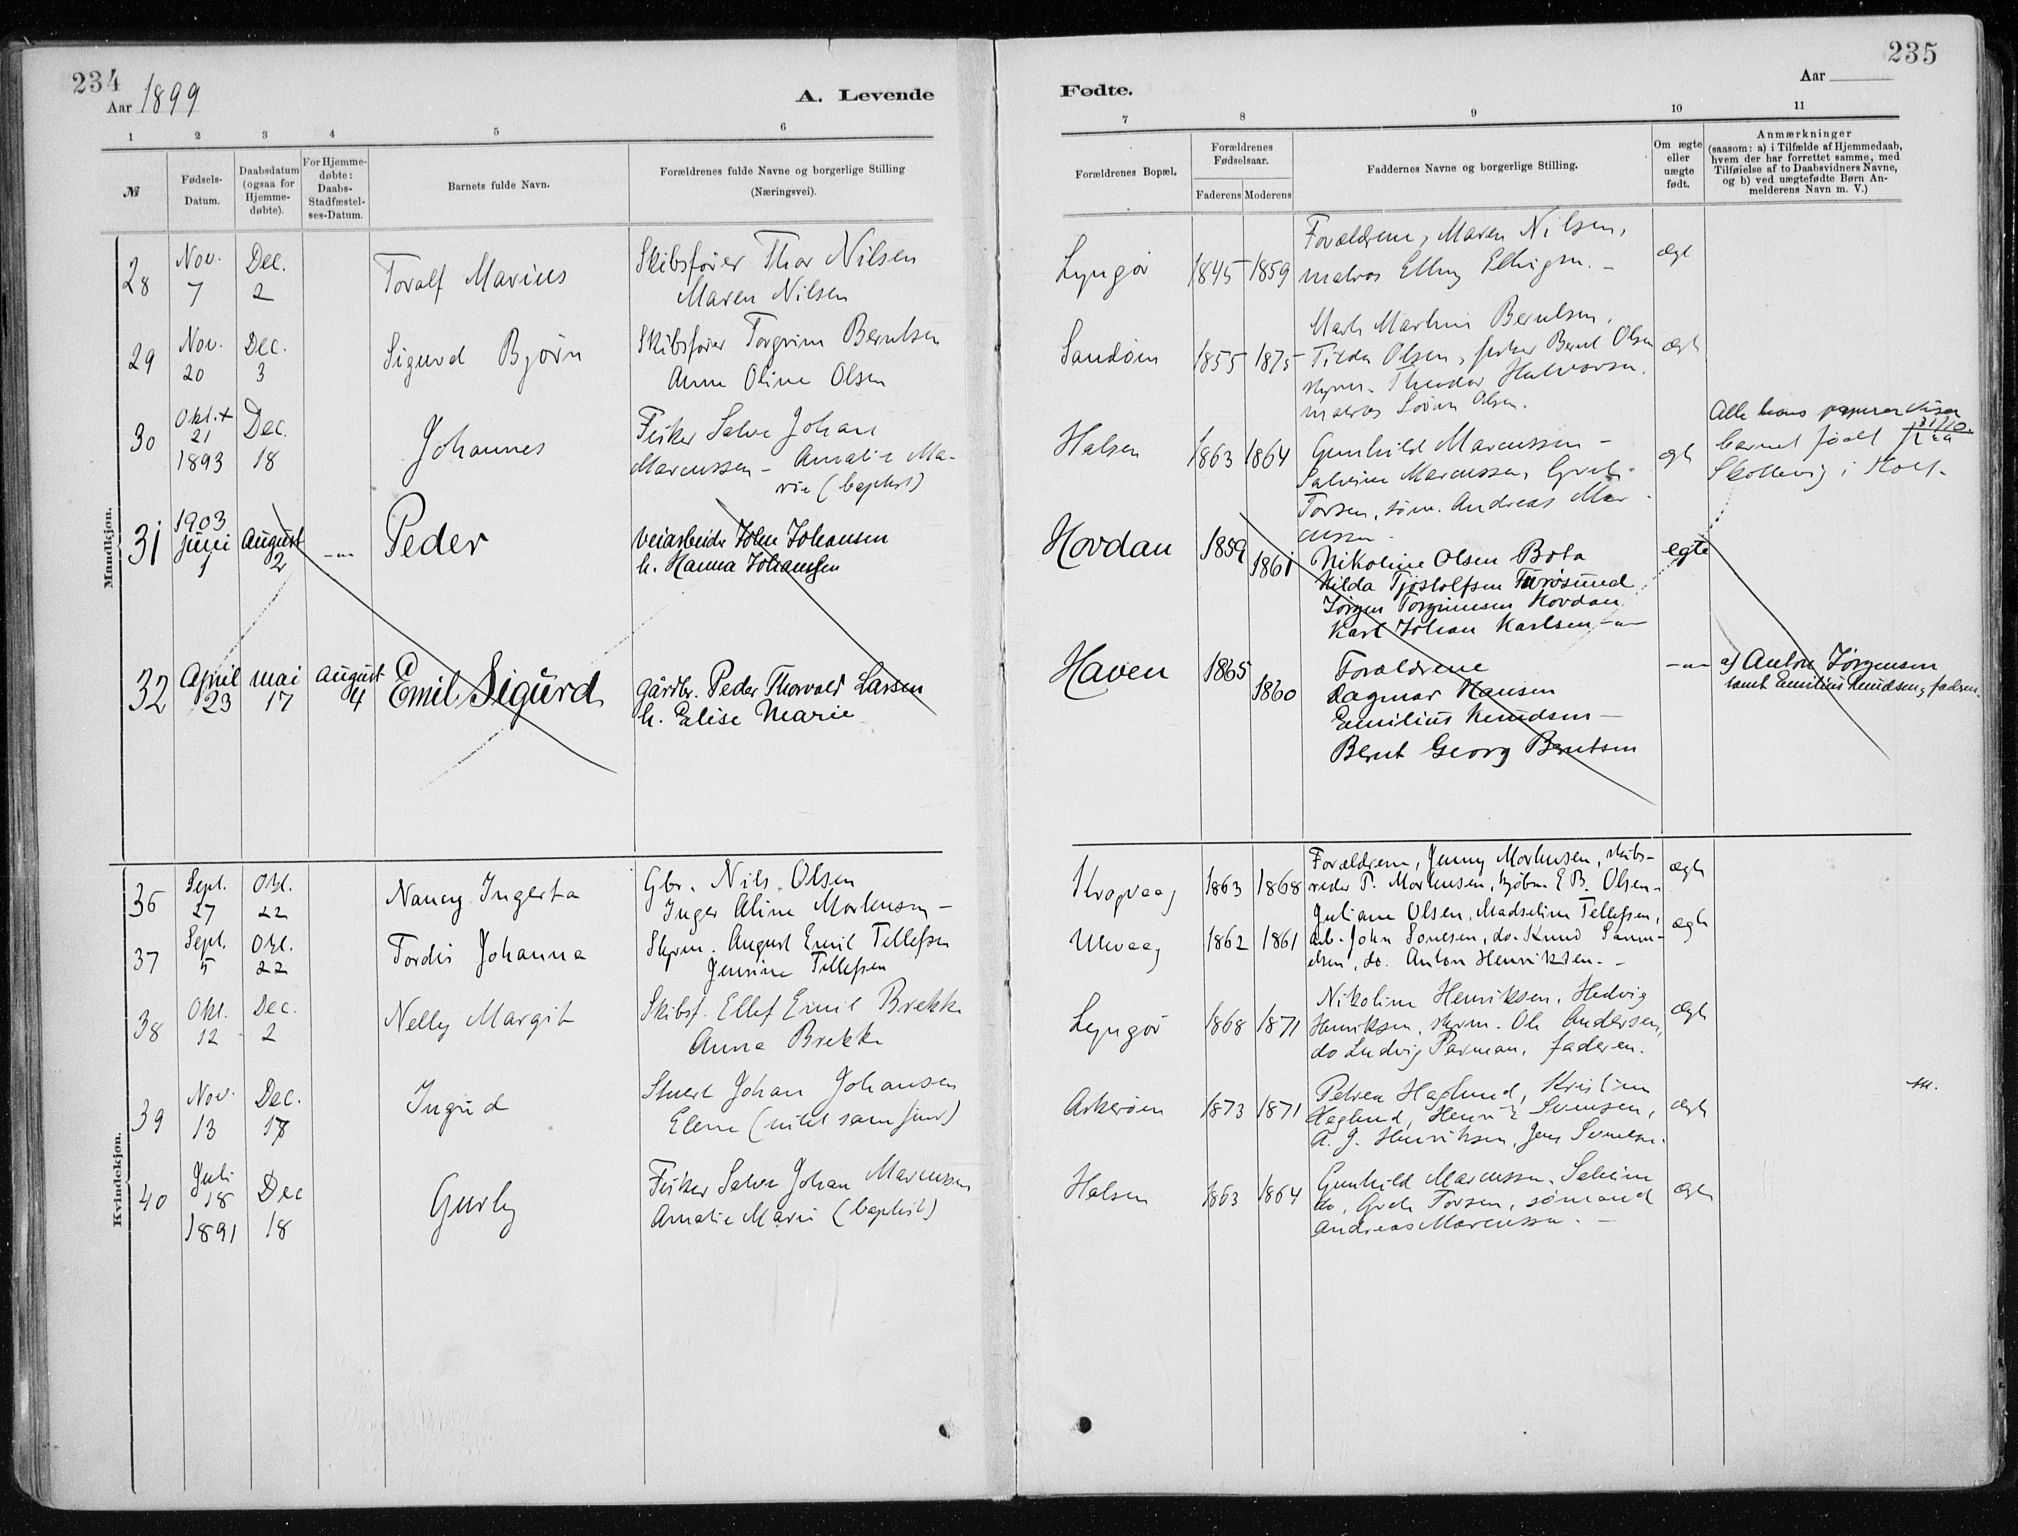 234
Aar 1899
A. Levende
1 2 3 4 5 6
№
Fødsels-
Datum.
Daabsdatum
(ogsaa for
Hjemme-
døbte).
For Hjemme-
døbte:
Daabs-
Stadfæstel-
ses-Datum.
Barnets fulde Navn.
Forældrenes fulde Navne og borgerlige Stilling
(Næringsvei).
Mandkjøn.
28 Nov. 7 Dec. 2 Toralf Marius
Skibsfører Thor Nilsen
Maren Nilsen
29 Nov. 20 Dec. 3 Sigurd Bjørn
Skibsfører Torgrim Berntsen
Anne Oline Olsen
30 Okt. + 21 1893 Dec. 18 Johannes
Fisker Salve Johan
Marcussen - Amalie Ma-
rie (baptist)
31 1903 Juni 1 August 2 -"- Peder
Veiarbeider John Johansen
h. Hanna Johansen
32 April 23 mai 17 August 4 Emil Sigurd
Gårdbr. Peder Thorvald Larsen
h. Elise Marie
Kvindekjøn.
36 Sept. 27 Okt. 22 Nancy Ingerta
Gbr. Nils Olsen
Inger Aline Mortensen -
37 Sept. 5 Okt. 22 Tordis Johanna
Styrm. August Emil Tellefsen
Jensine Tellefsen
38 Okt. 12 Dec. 2 Nelly Margit
Skibsf. Ellef Emil Brekke
Anna Brekke
39 Nov. 13 Dec. 17 Ingrid
Stuert Johan Johansen
Elene
40 Juli 18 1891 Dec 18 Gurly
Fisker Salve Johan Marcussen
Amalie Marie (baptist)
235
Aar
Fødte.
7 8 9 10 11
Forældrenes Bopæl.
Forældrenes
Fødselsaar.
Faderens Moderens
Faddernes Navne og borgerlige Stilling.
Om ægte
eller
uægte
født.
Anmærkninger
(saasom: a) i Tilfælde af Hjemmedaab,
hvem der har forrettet samme, med
Tilføielse af to Daabsvidners Navne,
og b) ved uægtefødte Børn An-
melderens Navn m. V.)
Lyngør 1845 1859
Forældrene, Maren Nilsen,
matros
ægt
Sandøen 1855 1875
Berntsen,
Tilda Olsen, fisker Bernt Olsen
styrm. Theodor Halvorsen
matros Søren Olsen.
ægt
Halsen 1863 1864
Gunhild Marcussen -
Salvine Marcussen,
Torsen, søm. Andreas Mar-
cussen -
egt
Alle hans papirer viser
barnet født 31/10.
i Holt.
Hovdan 1859 1861
Nikoline Olsen Bota
Hilda Tjostolfsen Furøsund
Jørgen Torgrimsen Hovdan
Karl Johan Karlsen -"-
egte
Haven 1865 1860
Forældrene
Dagmar Hansen
Emilius Knudsen -
Bernt Georg Berntsen
-"-
a) Anton Jørgensen
samt Emilius Knudsen, fadren.
Krogvaag 1863 1868
Forældrene, Jenny Mortensen, skibs-
reder P. Mortensen, kjøbm. E B. Olsen -
ægt
Ulevaag 1862 1861
Juliane Olsen, Madseline Tellefsen,
arb. John Sonesen, do. Knud Samu-
elsen, do. Anton Henriksen. -
ægt
Lyngør 1868 1871
Nikoline Henriksen, Hedvig
Henriksen, styrm. Ole Andersen,
do Ludvig Parman, faderen.
ægt
Askerøen 1873 1871
Petrea Haglund, Kristine
Haglund, Henrik Svensen,
A. J. Henriksen, Jens
ægt
Halsen 1863 1864
Gunhild Marcussen, Salvine
do, Torsen, sømand
Andreas Marcussen. -
ægt